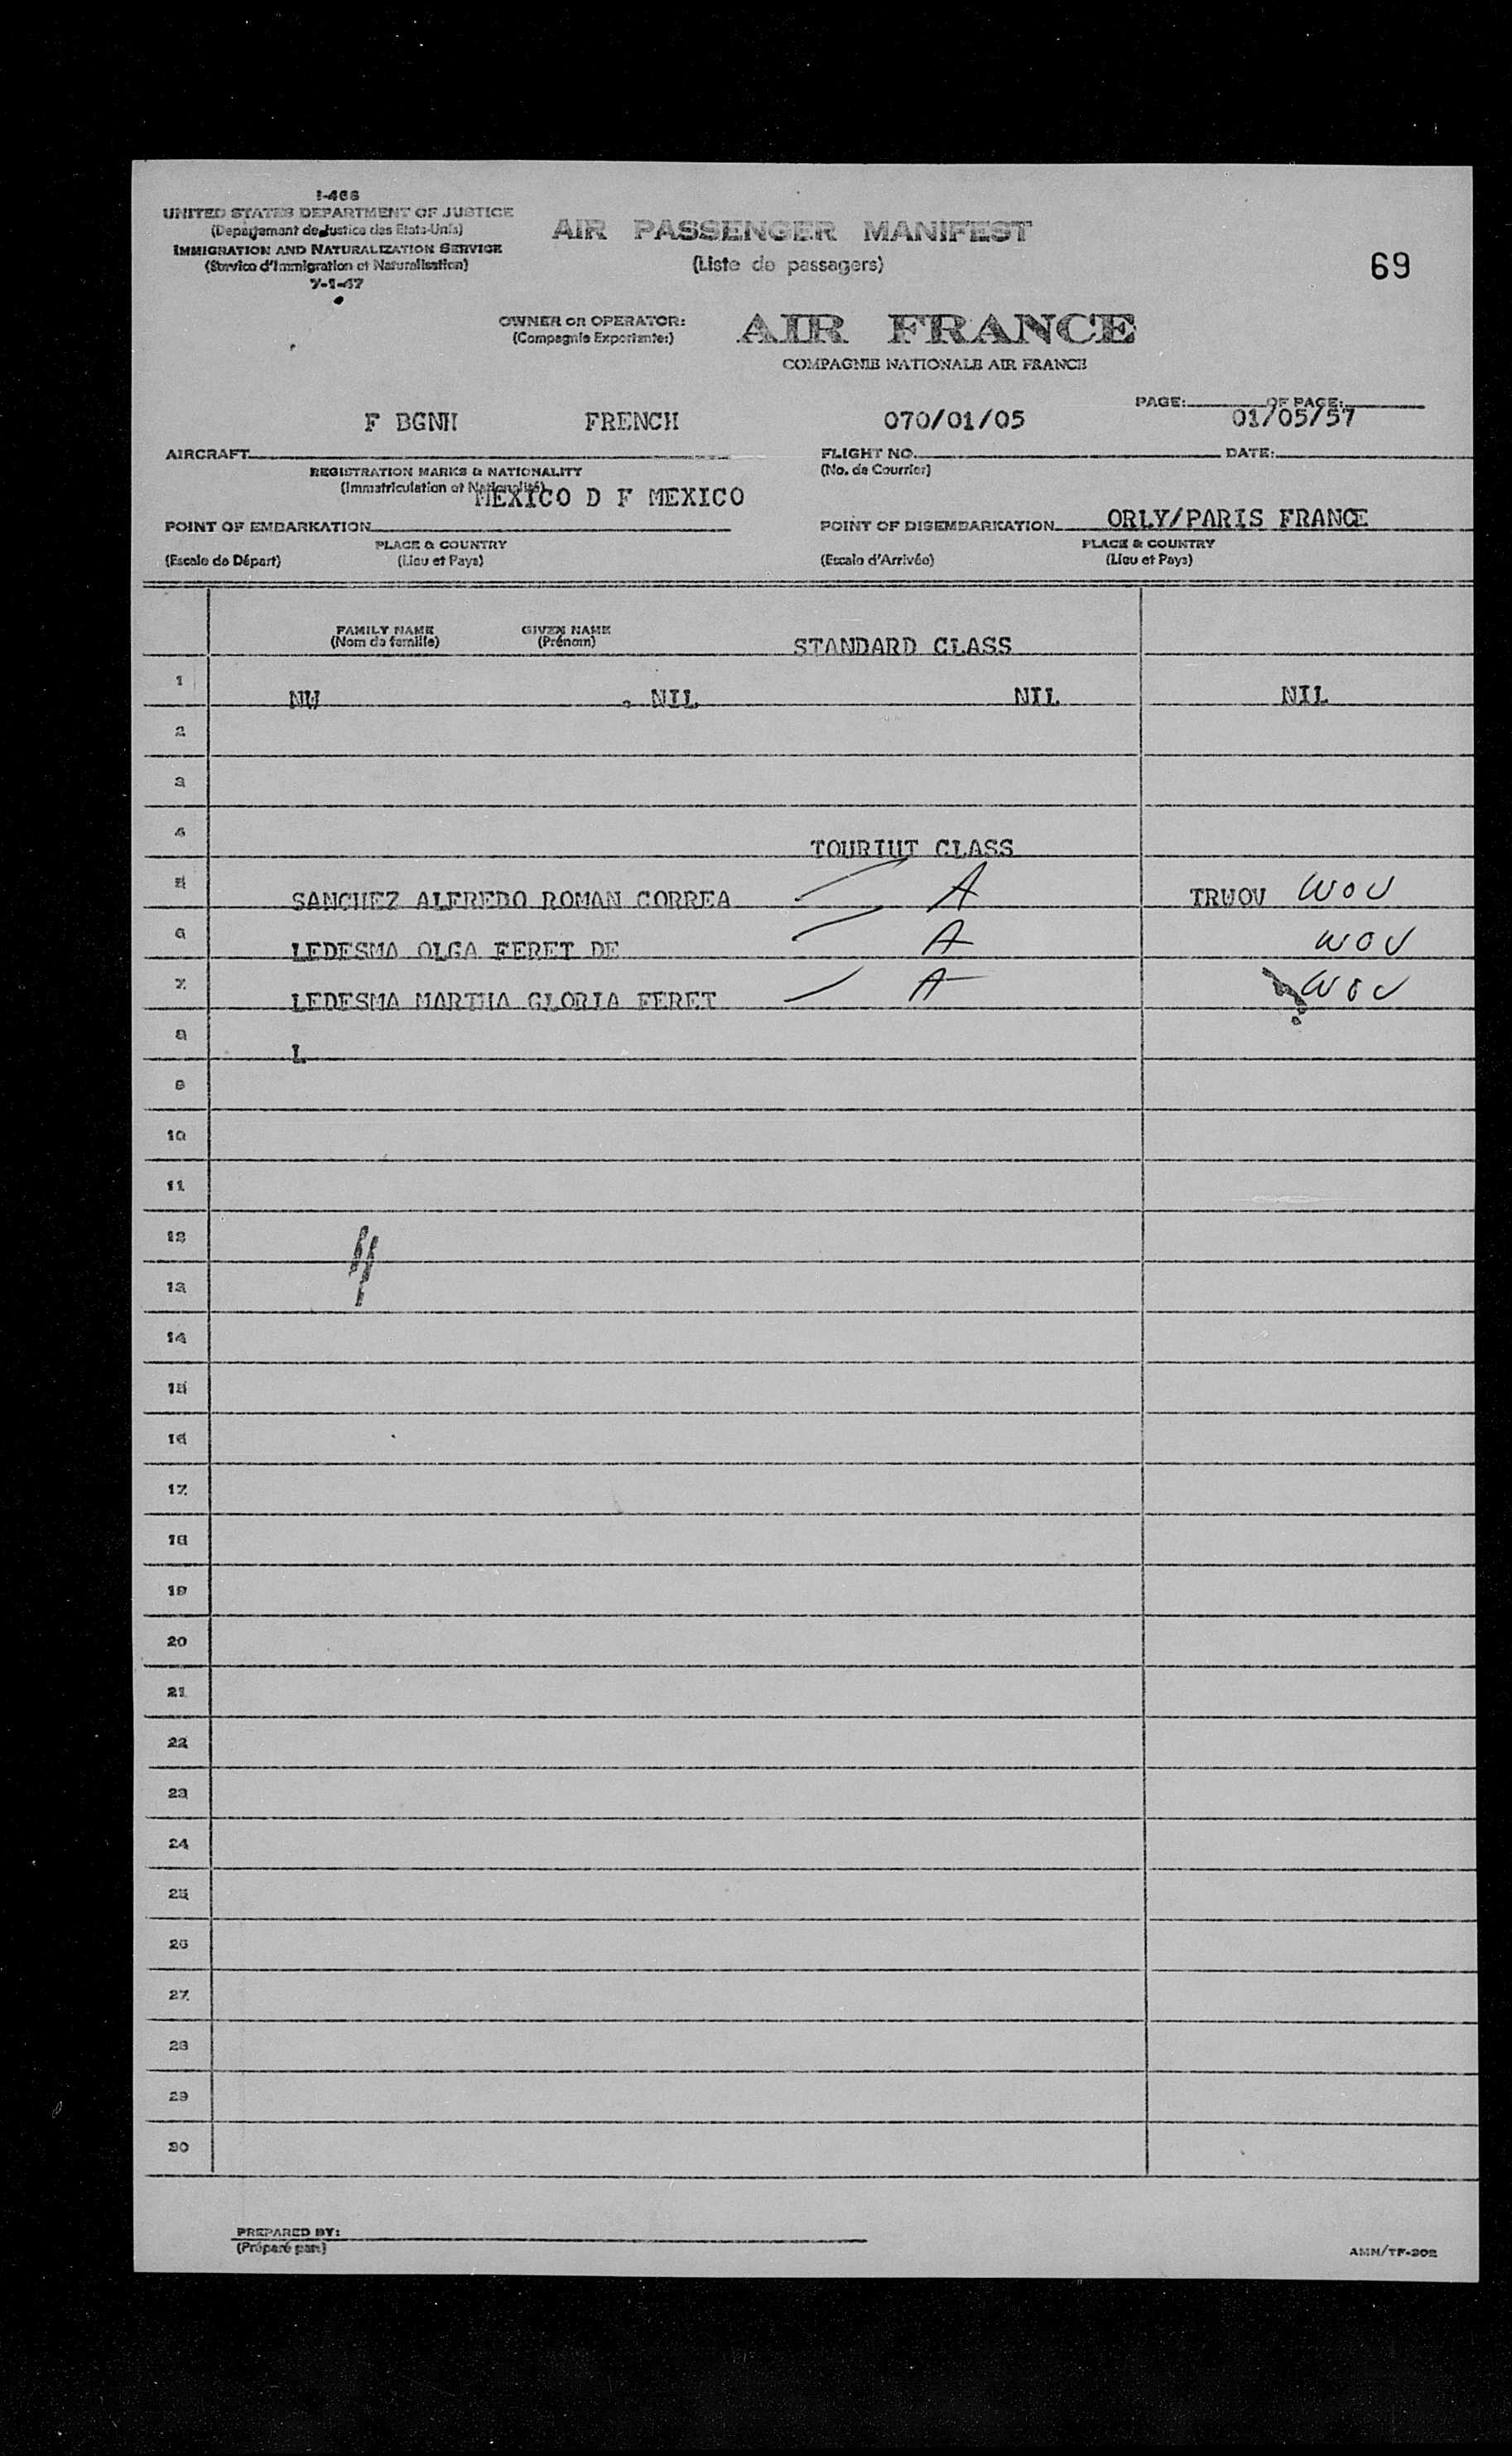 I-466
UNITED STATES DEPARTMENT OF JUSTICE
(Departement de Justice des Etats-Unis)
IMMIGRATION AND NATURALIZATION SERVICE
(Service d'Immigration et Naturalisation)
7-1-47
AIR PASSENGER MANIFEST
(Liste de passagers)
69
OWNER OR OPERATOR:
(Compagnie Exportante:)
AIR FRANCE
COMPAGNIE NATIONALE AIR FRANCE
PAGE: OF PAGE:
F BGNH FRENCH 070/01/05 01/05/57
AIRCRAFT FLIGHT NO. DATE:
REGISTRATION MARKS & NATIONALITY (No. de Courrier)
(Immatriculation et Nationalité)
MEXICO D F MEXICO
POINT OF EMBARKATION POINT OF DISEMBARKATION ORLY/PARIS FRANCE
PLACE & COUNTRY PLACE & COUNTRY
(Escale de Départ) (Lieu et Pays) (Escale d'Arrivée) (Lieu et Pays)
FAMILY NAME GIVEN NAME
(Nom de famille) (Prénom) STANDARD CLASS
1 NW . NIL NIL NIL
2
3
4 TOURIUT CLASS
5 SANCHEZ ALFREDO ROMAN CORREA A TRWOV WOV
6 LEDESMA OLGA FERET DE A WOV
7 LEDESMA MARTHA GLORIA FERET A WOV
8 L
9
10
11
12
13
14
15
16
17
18
19
20
21
22
23
24
25
26
27
28
29
30
PREPARED BY:
(Préparé par:)
AMN/TF-302